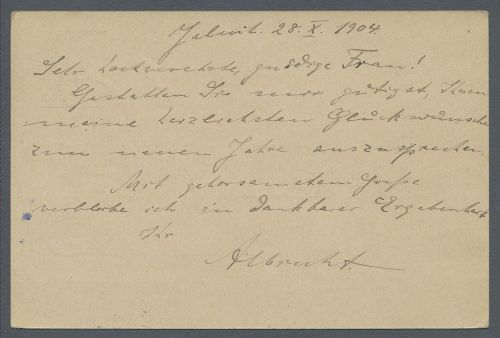 Jaluit. 28. X. 1904.
Sehr hochverehrte, gnädige Frau!
Gestatten Sie mir gütigst, Ihnen
meine herzlichsten Glückwünsche
zum neuen Jahre auszusprechen.
Mit gehorsamstem Gruße
verbleibe ich in dankbarer Ergebenheit
Ihr
Albrecht.